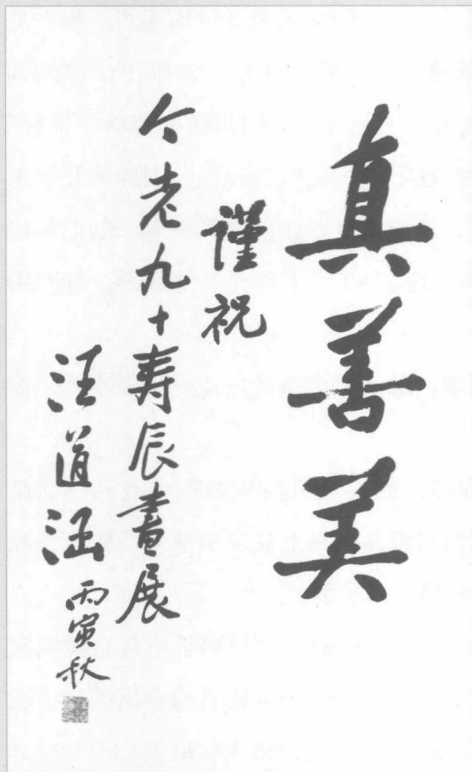 真善美
謹祝
个老九十寿辰畫展
汪道涵 丙寅秋